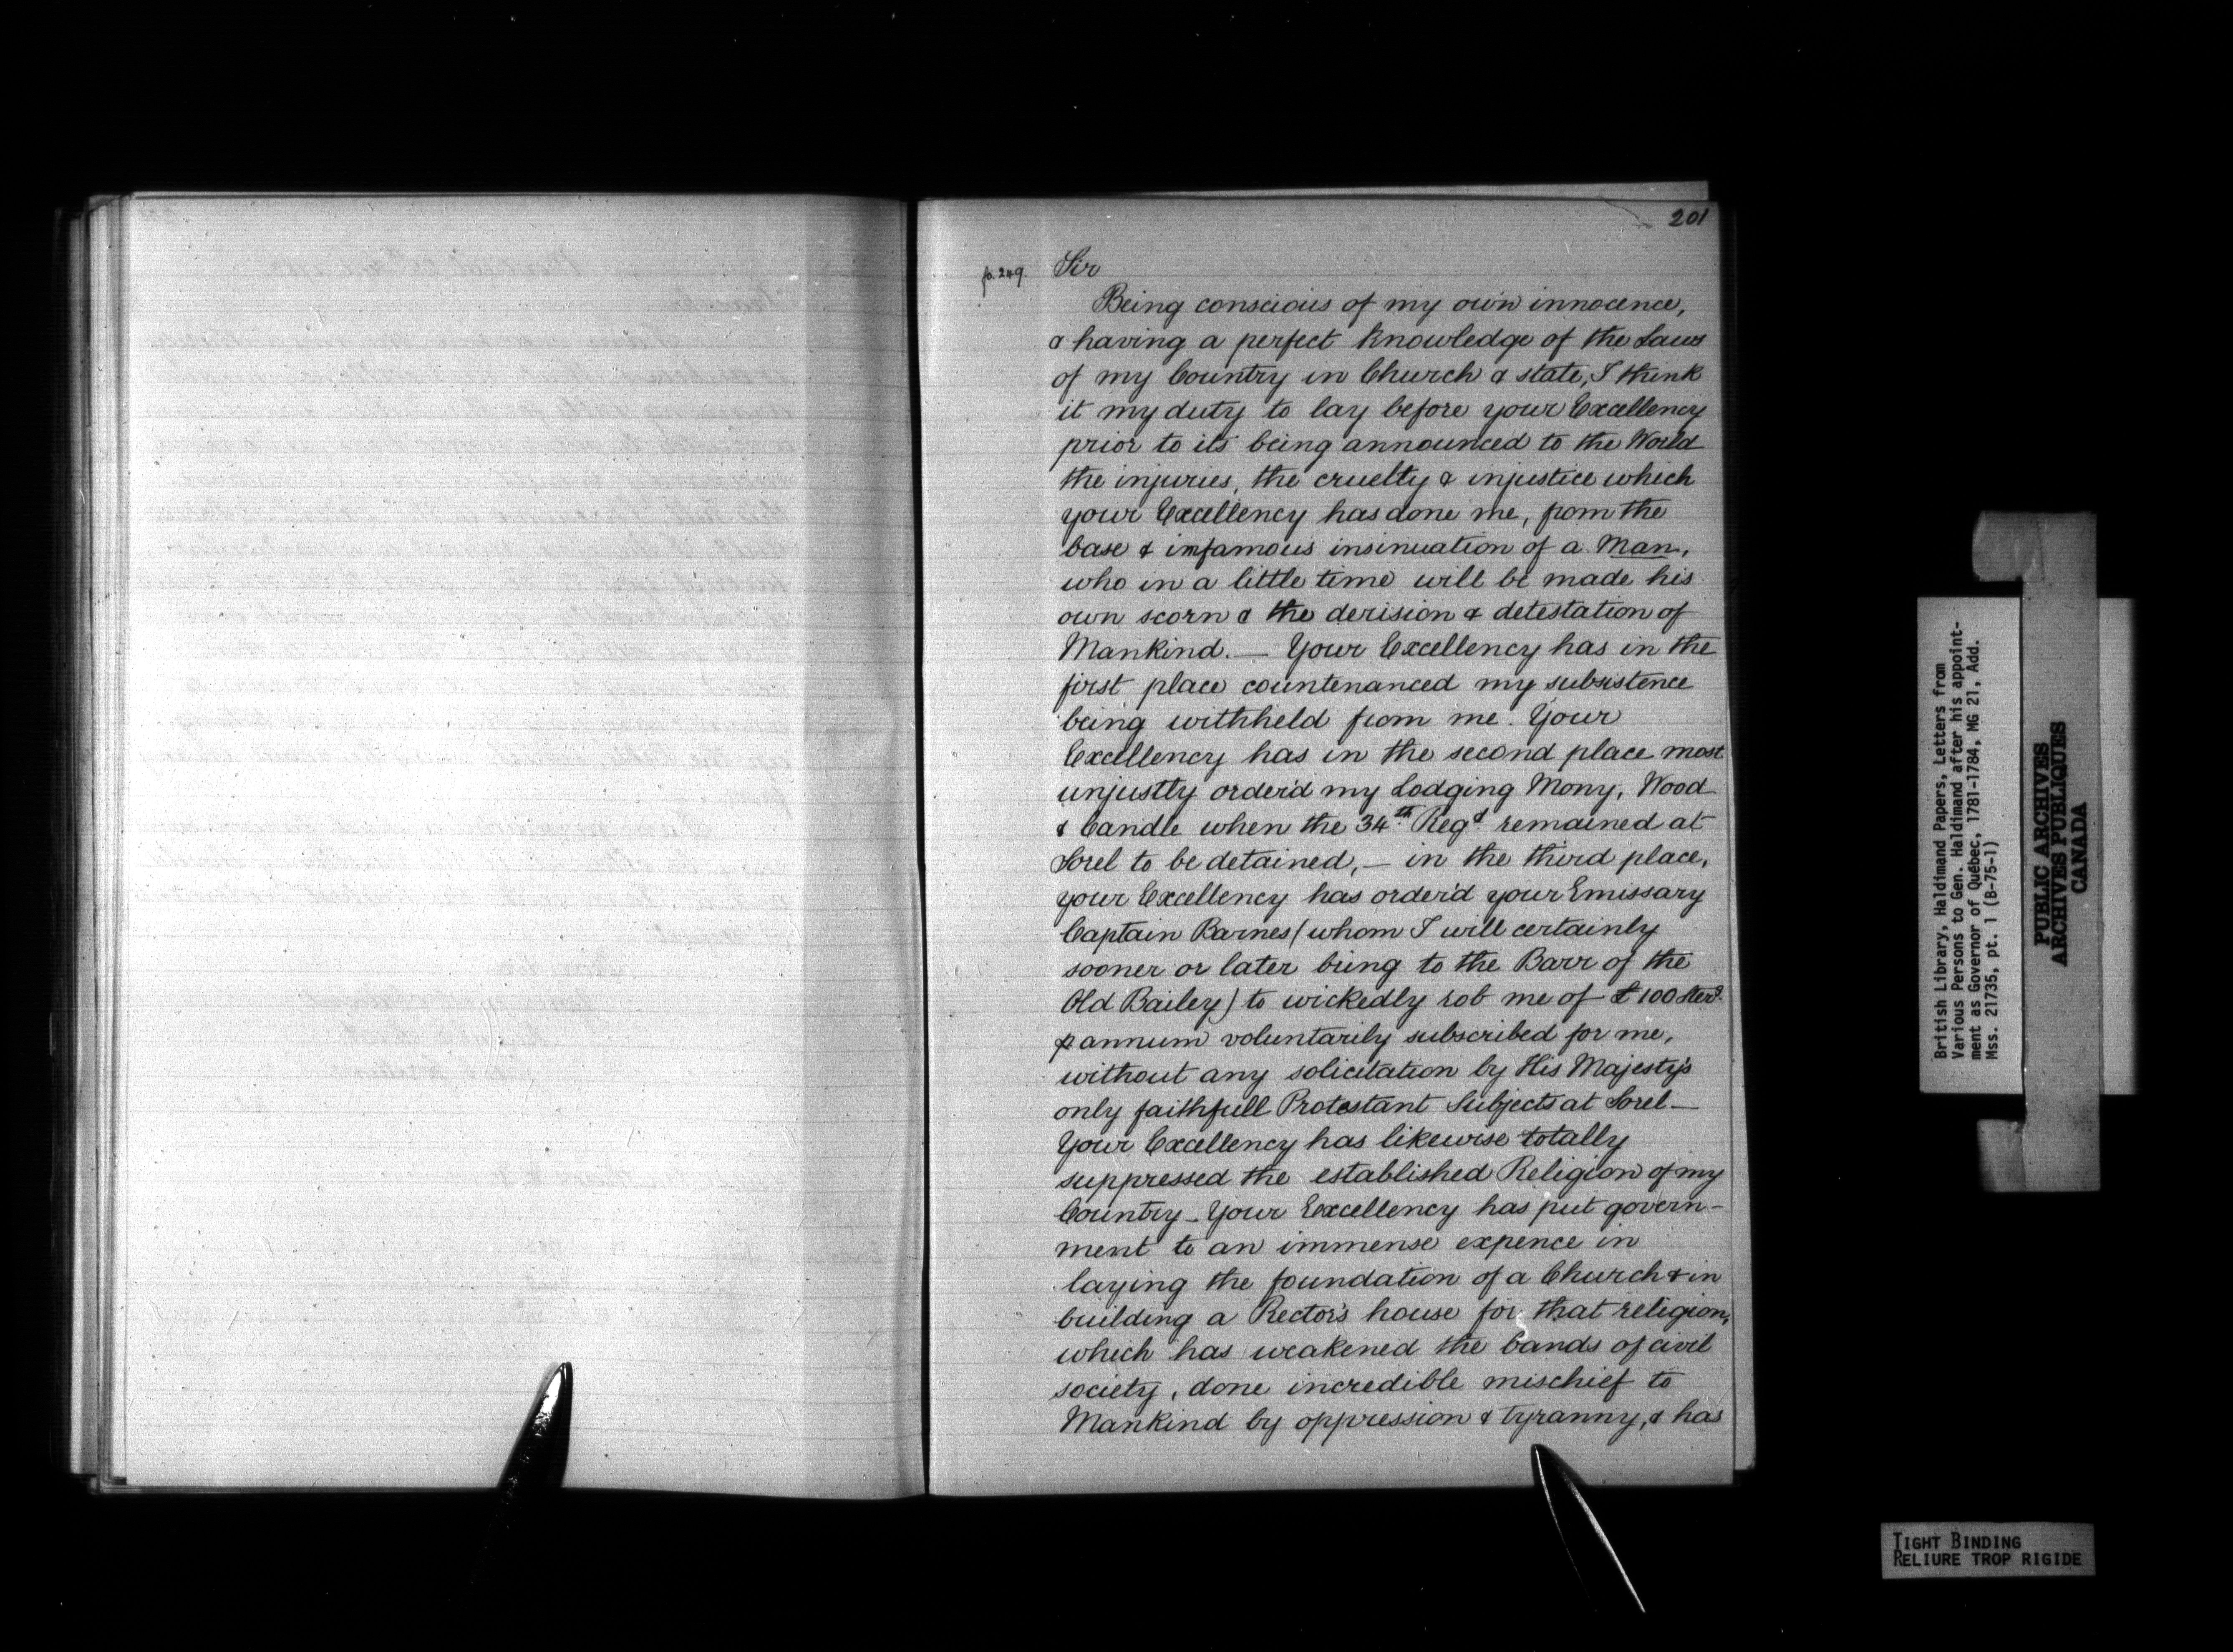 201
fo. 249. Sir
Being conscious of my own innocence,
& having a perfect knowledge of the Laws
of my Country in Church & state, I think
it my duty to lay before your Excellency
prior to its being announced to the World
the injuries, the cruelty & injustice which
your Excellency has done me, from the
base & infamous insinuation of a Man,
who in a little time will be made his
own scorn & the derision & detestation of
Mankind. — Your Excellency has in the
first place countenanced my subsistence
being withheld from me. Your
Excellency has in the second place most
unjustly order'd my Lodging Mony, Wood
& Candle when the 34th Regt remained at
Sorel to be detained, — in the third place,
your Excellency has order'd your Emissary
Captain Barnes (whom I will certainly
sooner or later bring to the Barr of the
Old Bailey) to wickedly rob me of £100 sterg.
p annum voluntarily subscribed for me,
without any solicitation by His Majesty's
only faithfull Protestant Subjects at Sorel —
Your Excellency has likewise totally
suppressed the established Religion of my
Country — Your Excellency has put govern-
ment to an immense expence in
laying the foundation of a Church & in
building a Rector's house for that religion,
which has weakened the bands of civil
society, done incredible mischief to
Mankind by oppression & tyranny, & has
British Library, Haldimand Papers, Letters from
Various Persons to Gen. Haldimand after his appoint-
ment as Governor of Québec, 1781-1784, MG 21, Add.
Mss. 21735, pt. 1 (B-75-1)
PUBLIC ARCHIVES
ARCHIVES PUBLIQUES
CANADA
TIGHT BINDING
RELIURE TROP RIGIDE